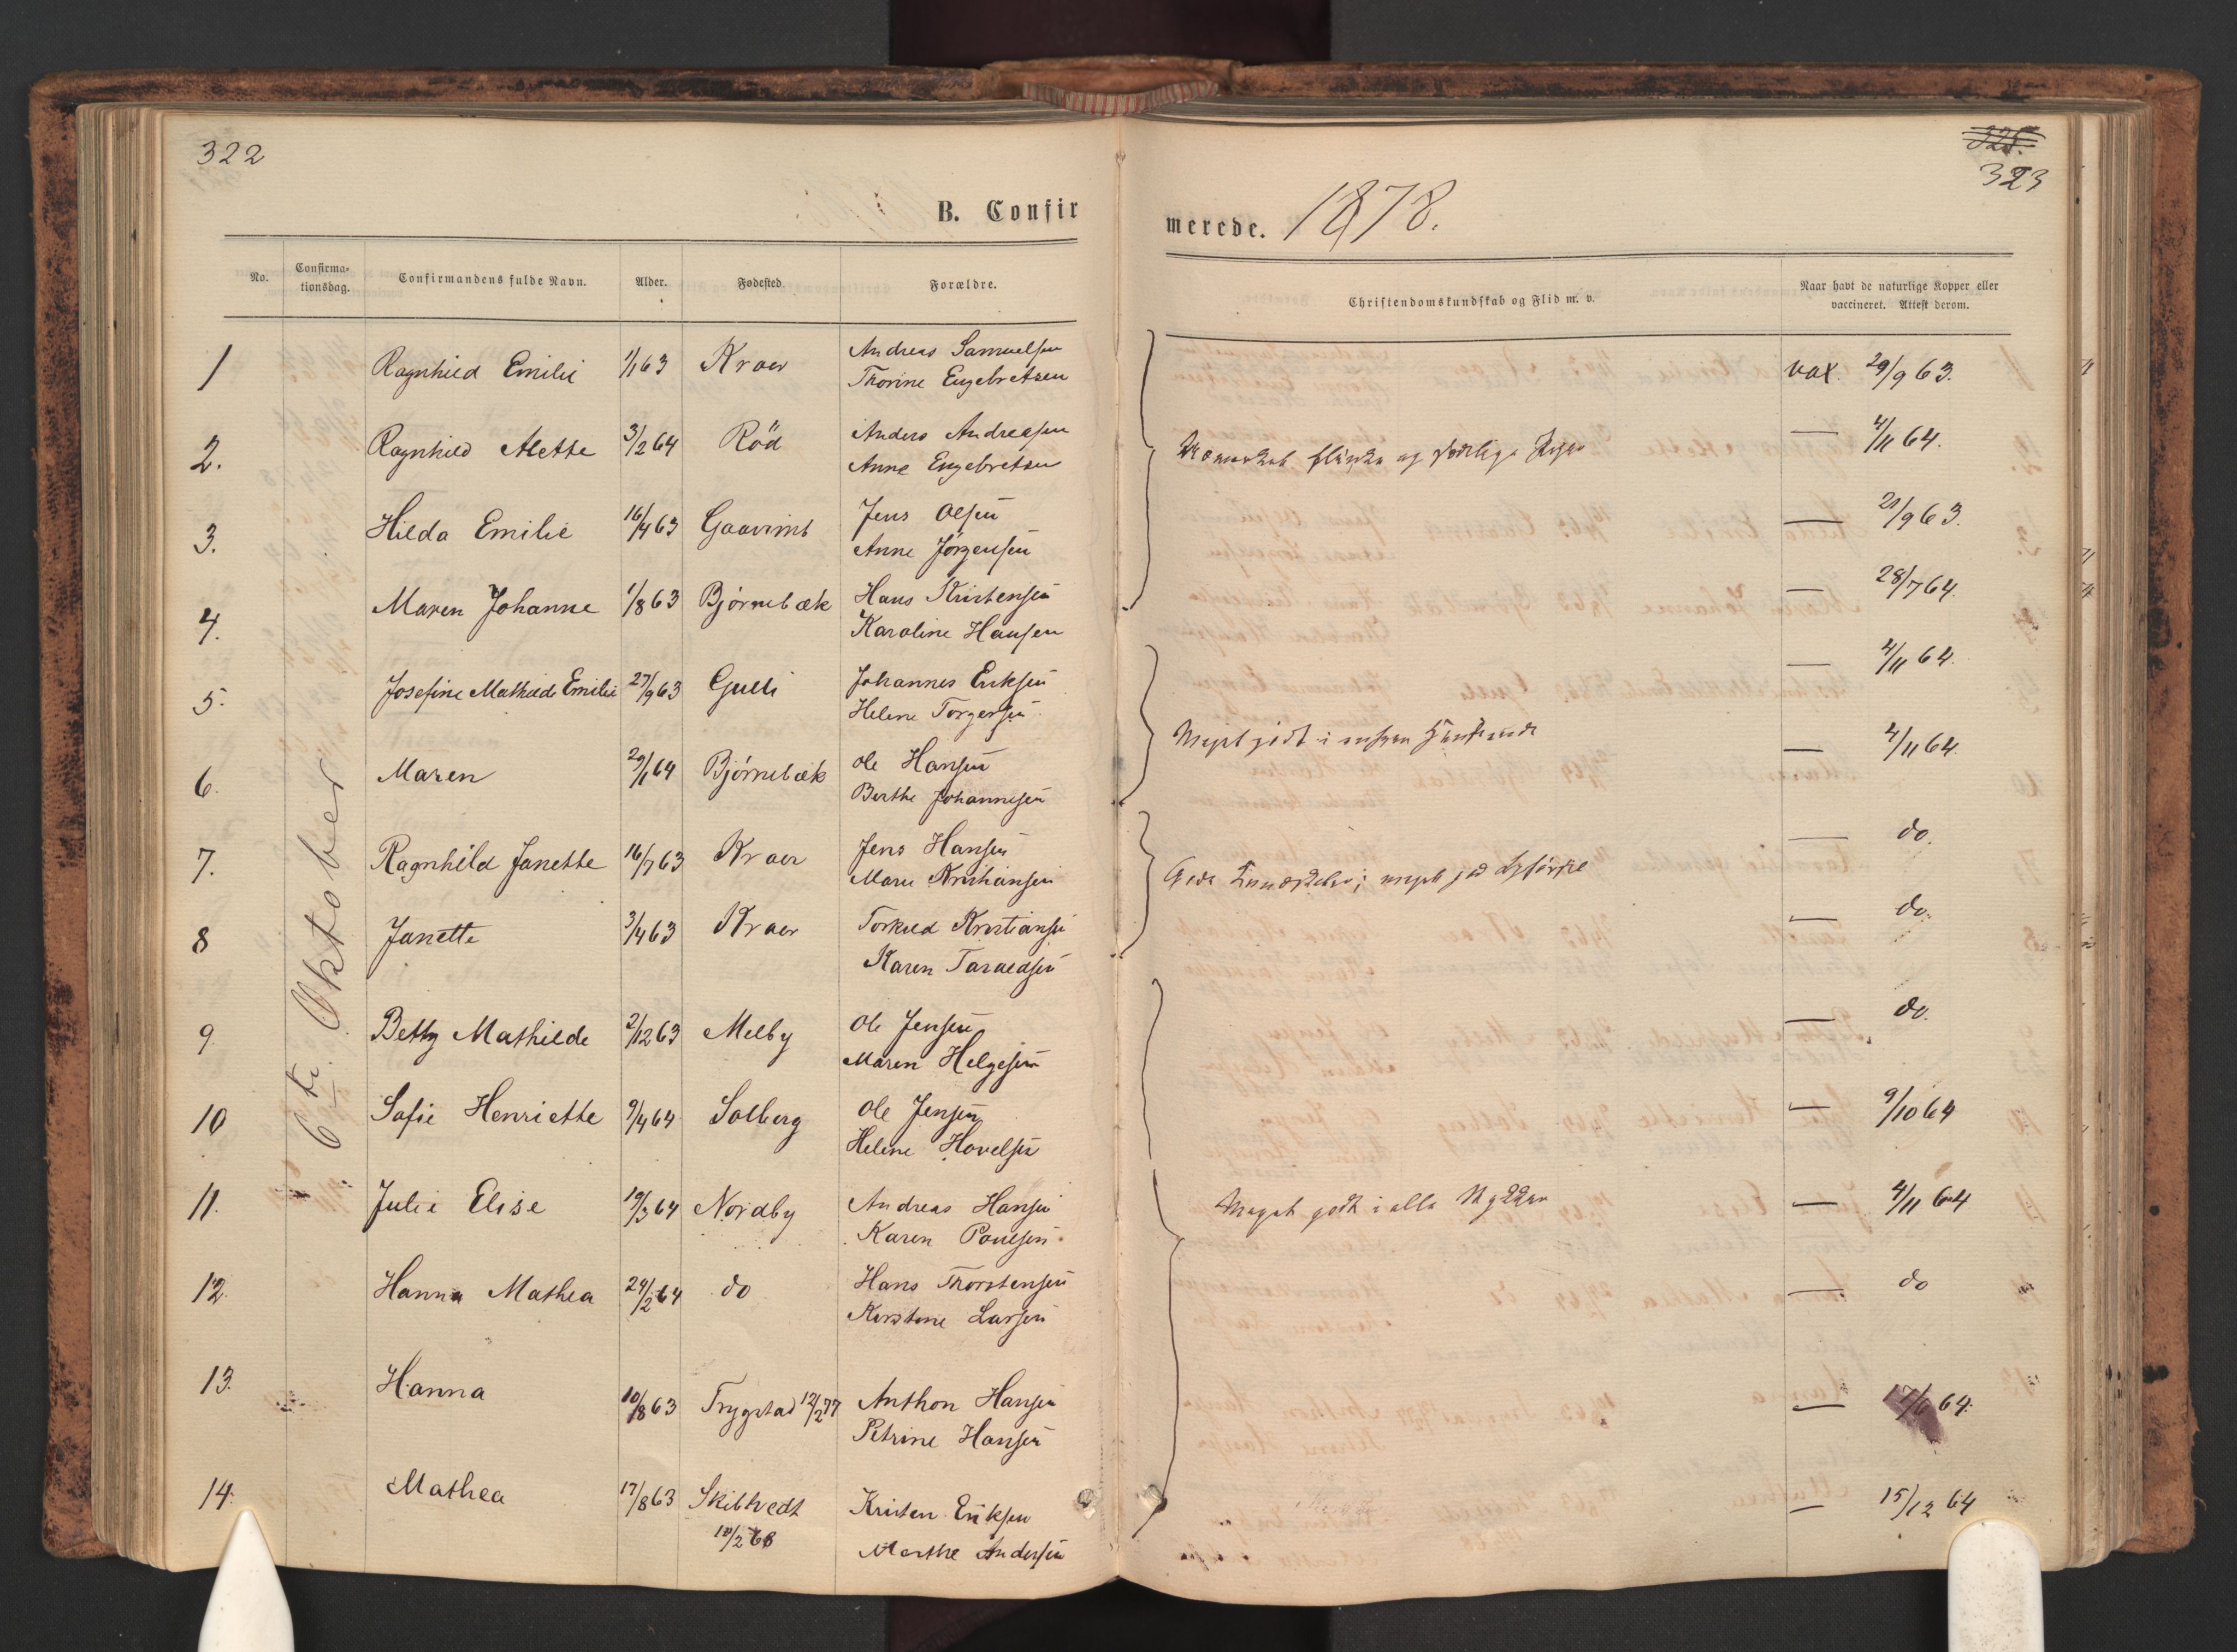 322
B. Confir
No. Confirma-tionsdag. Confirmandens fulde Navn. Alder. Fødested. Forældre.
6te Oktober
1 Ragnhild Emilie 1/1 63 Kroer Andreas Samuelsen
Thorine Engebretsen
2. Ragnhild Alette 3/2 64 Röd Anders Andreasen
Anne Engebretsen
3. Hilda Emilie 16/4 63 Jens Olsen
Anne Jørgensen
4. Maren Johanne 1/8 63 Bjørnebæk Hans Kristensen
Karoline Hansen
5. Josefine Mathilde Emilie 27/9 63 Gulli Johannes Eriksen
Helene Torgersen
6. Maren 29/1 64 Bjørnebæk Ole Hansen
Berthe Johannesen
7. Ragnhild Janette 16/7 63 Kroer Jens Hansen
Maren Kristiansen
8 Janette 3/4 63 Kroer Torkild Kristiansen
Karen Taraldsen
9. Betty Mathilde 2/12 63 Melby Ole Jensen
Maren Helgesen
10 Sofie Henriette 9/4 64 Solberg Ole Jensen
Helene Hovelsen
11. Julie Elise 19/3 64 Nordby Andreas Hansen
Karen Poulsen
12. Hanna Mathea 24/2 64 do Hans Thorstensen
Kirstine Larsen
13. Hanna 10/8 63 Trygstad 12/2 77 Anthon Hansen
Petrine Hansen
14. Mathea 17/8 63 Skibtvedt Kristen Eriksen
10/2 68 Marthe Andersen
325.
323
merede. 1878.
Christendomskundskab og Flid m. v. Naar havt de naturlige Kopper eller
vaccineret. Attest derom.
vax. 29/9 63.
flinke og
— 4/11 64.
— 21/9 63.
— 28/7 64.
— 4/11 64.
Meget godt i
— 4/11 64.
— do.
Gode Kundskaber; meget god
— do.
— do.
— 9/10 64
Meget godt i alle Stykker
— 4/11 64
— do
— 17/6 64.
— 15/12 64